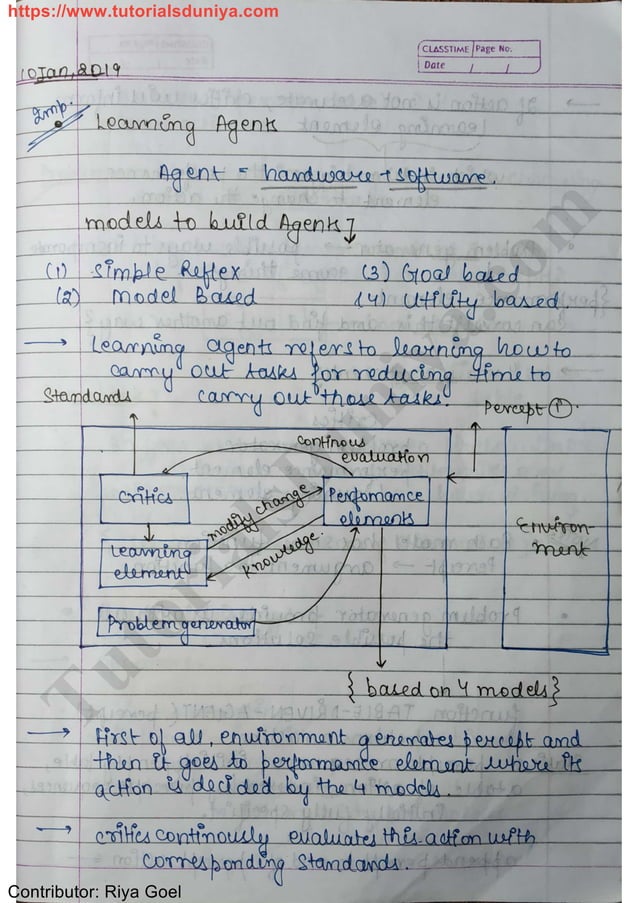 https://www.tutorialsduniya.com
CLASSTIME Page No.
Date / /
10 Jan, 2019
Imp.
Learning Agents
Agent = hardware + software.
models to build Agents
(1) Simple Reflex (3) Goal based
(2) Model Based (4) Utility based
→ Learning agents refers to learning how to
carry out tasks for reducing time to
carry out those tasks.
Standards
Percept (P).
continous
evaluation
Critics
Perfomance
elements
modify change
knowledge.
Learning
element
Problem generator
Environ-
ment
{based on 4 models}
→ First of all, environment generates percept and
then it goes to performance element where its
action is decided by the 4 models.
→ Critics continously evaluates this action with
corresponding standards.
TutorialsDuniya.com
Contributor: Riya Goel